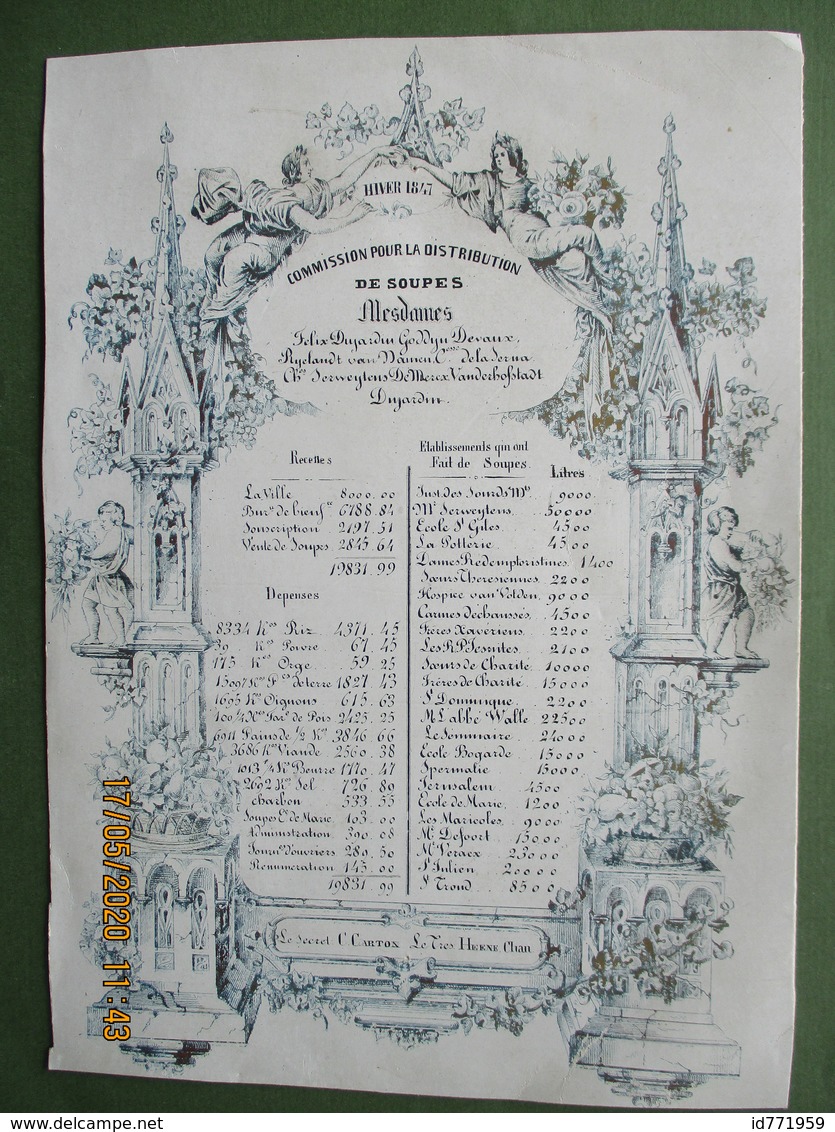 HIVER 1847
COMMISSION POUR LA DISTRIBUTION
DE SOUPES
Mesdames
Felix Dujardin Goddyn Devaux,
Ryelandt van Damen Csse de la Serna
Chev Serweytens De Merex Vanderhofstadt
Dujardin.
Recettes
La Ville 8000.00
Bur. de bienfce 6788.84
Souscription 2197.51
Vente de Soupes 2845.64
19831.99
Depenses
8334 Kos Riz 4371.45
39 Kos Poivre 67.45
175 Kos Orge 59.25
15007 Kos P. de terre 1827.43
1695 Kos Oignons 615.63
100 1/4 Far. de Pois 2425.25
6911 Pains de 1/2 K. 3846.66
3686 Kos Viande 2560.38
1013 1/4 Ko Beurre 1770.47
2602 Ko Sel 726.89
charbon 533.55
Soupes Ec. de Marie 103.00
Administration 390.08
Journ. d'ouvriers 289.50
Renumeration 145.00
19831.99
Etablissements qui ont
Fait de Soupes. Litres
Inst. des Sourds Mts. 9000.
Mr Serweytens. 50000
Ecole St Giles. 4500
La Potterie. 4500.
Dames Redemptoristines. 1400
Sœurs Theresiennes 2200
Hospice van Volden 9000
Carmes dechaussés, 4500
Frères Xavériens. 2200
Les R.P. Jesuites. 2100
Sœurs de Charité 10000
Frères de Charité. 15000
St Dominique. 2200
Mr L'abbé Walle 22500
Le Séminaire 24000
Ecole Bogarde 15000
Spermalie 15000
Jerusalem 4500
Ecole de Marie. 1200
Les Maricoles 9000
Mr Defoort 15000
Mr Veraex 25000
St Julien 20000
St Trond 8500
Le Secret C. CARTON Le Tres HEENE Chan
17/05/2020 11:43
delcampe.net
id771959